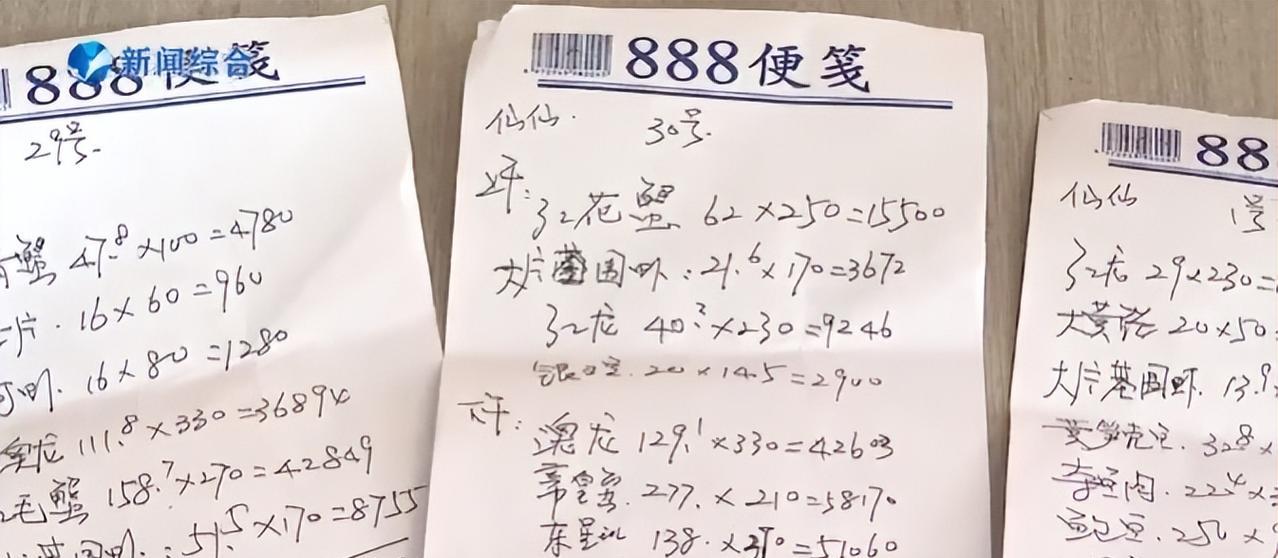 新闻综合
888便笺
29号.
蟹 47.8×100=4780
片. 16×60=960
16×80=1280
龙 111.8×330=36894
毛蟹 158.7×270=42849
51.5×170=8755
888便笺
仙仙. 30号.
上午: 红花蟹 62×250=15500
大片基围虾: 21.6×170=3672
红龙 40.2×230=9246
20×145=2900
下午: 澳龙 129.1×330=42603
帝皇蟹. 277.×210=58170
东星斑 138.×370=51060
88
仙仙 1号
红龙 29×230=
20×50
大片基围虾. 13.9
32.8×
22.4×
鲍 250×